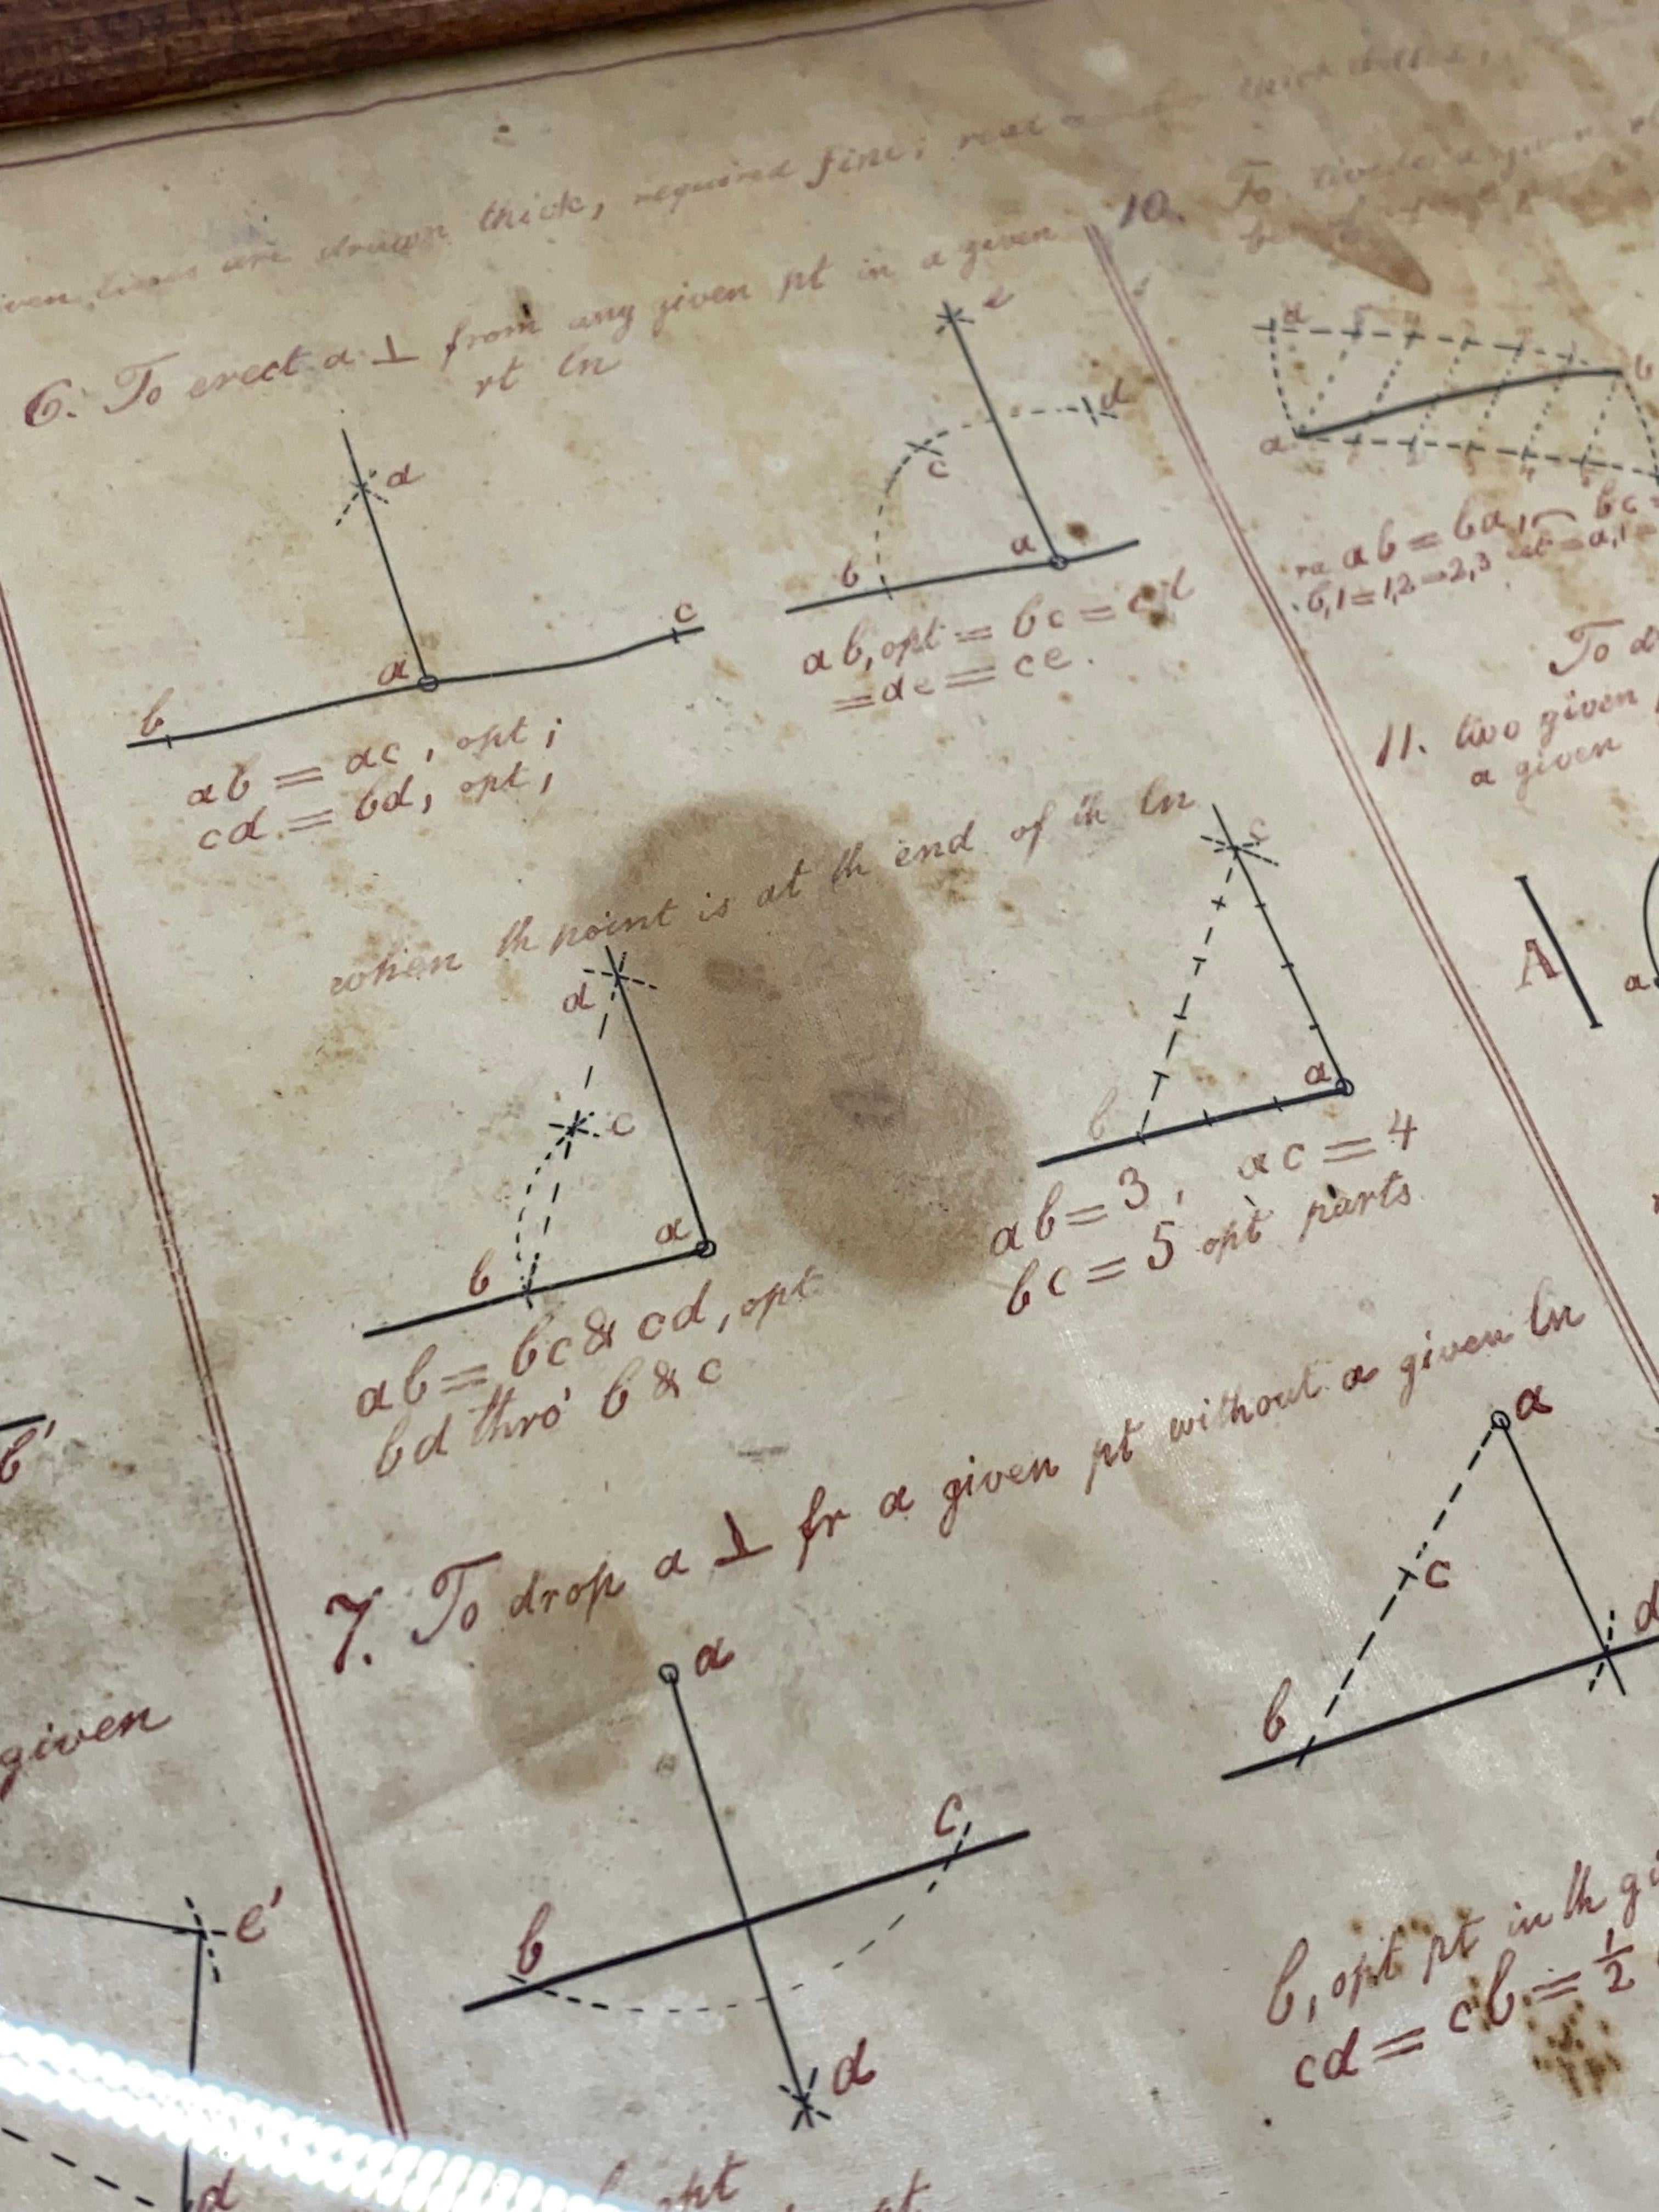 lines are drawn thick, required fine;
6. To erect a ⊥ from any given pt in a given
rt ln
d
a
b
c
ab = ac, opt;
cd = bd, opt,
e
d
c
b
a
ab, opt = bc = cd
= de = ce.
when th point is at th end of th ln
d
c
b
a
ab = bc & cd, opt
bd thro' b & c
c
b
a
ab = 3, ac = 4
bc = 5 opt parts
7. To drop a ⊥ fr a given pt without a given ln
a
b
c
d
a
c
b
d
b, opt pt in th
cd = cb = 1/2
10. To
d
b
a
ab = ba, bc =
b,1 = 1,2 = 2,3 = a,1 =
To
11. two given
a given
A
a
b'
given
e'
d
opt